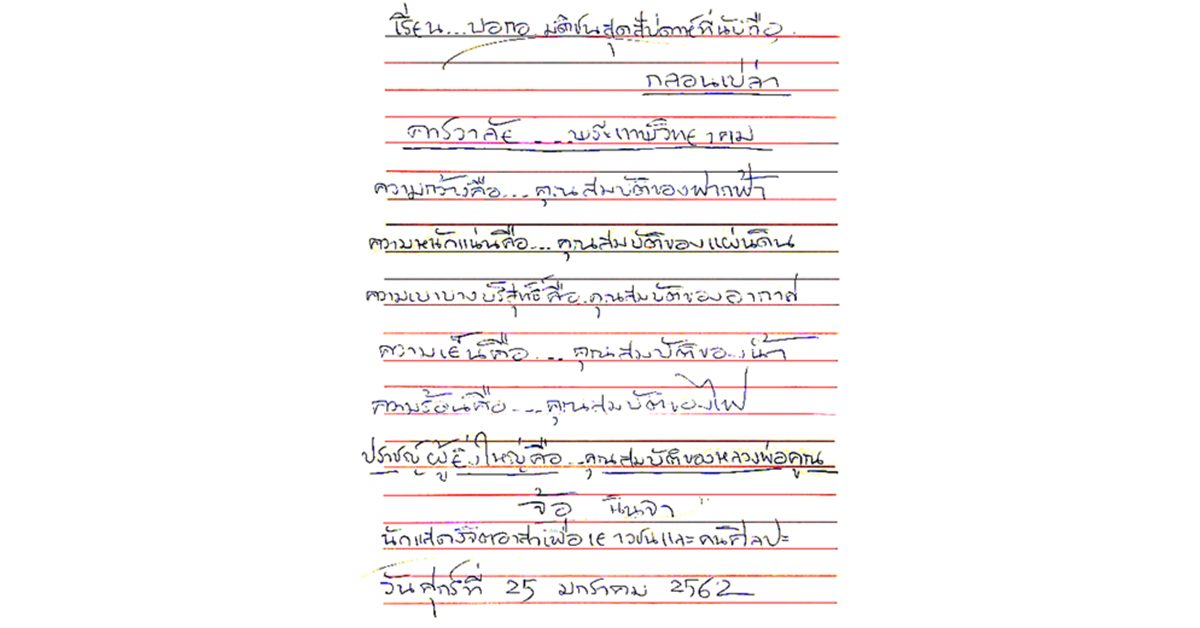 เรียน...บอกอ มติชนสุดสัปดาห์ที่นับถือ
กลอนเปล่า
คารวาลัย....พระเทพวิทยาคม
ความกว้างคือ...คุณสมบัติของฟากฟ้า
ความหนักแน่นคือ...คุณสมบัติของแผ่นดิน
ความเบาบางบริสุทธิ์คือ..คุณสมบัติของอากาศ
ความเย็นคือ....คุณสมบัติของน้ำ
ความร้อนคือ....คุณสมบัติของไฟ
ปราชญ์ผู้ยิ่งใหญ่คือ...คุณสมบัติของหลวงพ่อคูณ
จ้อ นินจา
นักแสดงจิตอาสาเพื่อเยาวชนและคนศิลปะ
วันศุกร์ที่ 25 มกราคม 2562